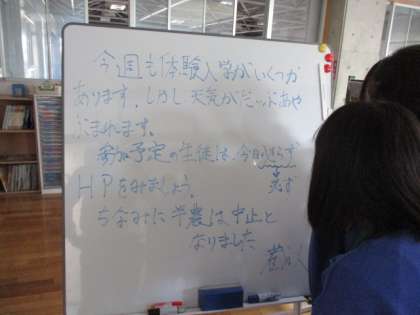 今週も体験入学がいくつか
あります。しかし天気がだいぶあや
ぶまれます。
参加予定の生徒は、今日かならず
必ず
HPをみましょう。
ちなみに半農は中止と
なりました